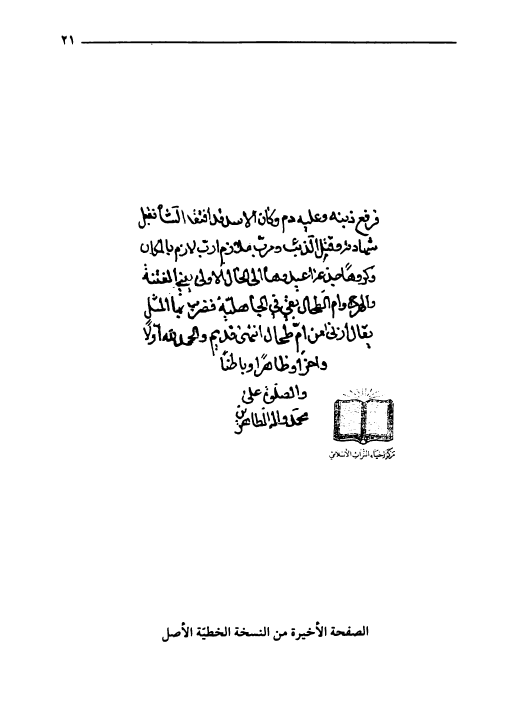 ٢١
فرفع ذبنه وعليه دم وكان الاسد قد افتقد الشاة فقبل
شهادته وقتل الذئب ومرب ملازم ارب لازم بالمكان
وكروها جذعة اعيدوها الى الحال الاولى يعني الفتنة
والهرج وام الطحال بغي في الجاهلية فضرب بها المثل
يقال ازنى من ام طحال انتهى قديم والحمد لله اولا
واخرًا وظاهرًا وباطنًا
والصلوة على
محمد واله الطاهرين
مركز احياء التراث الاسلامي
الصفحة الأخيرة من النسخة الخطيّة الأصل